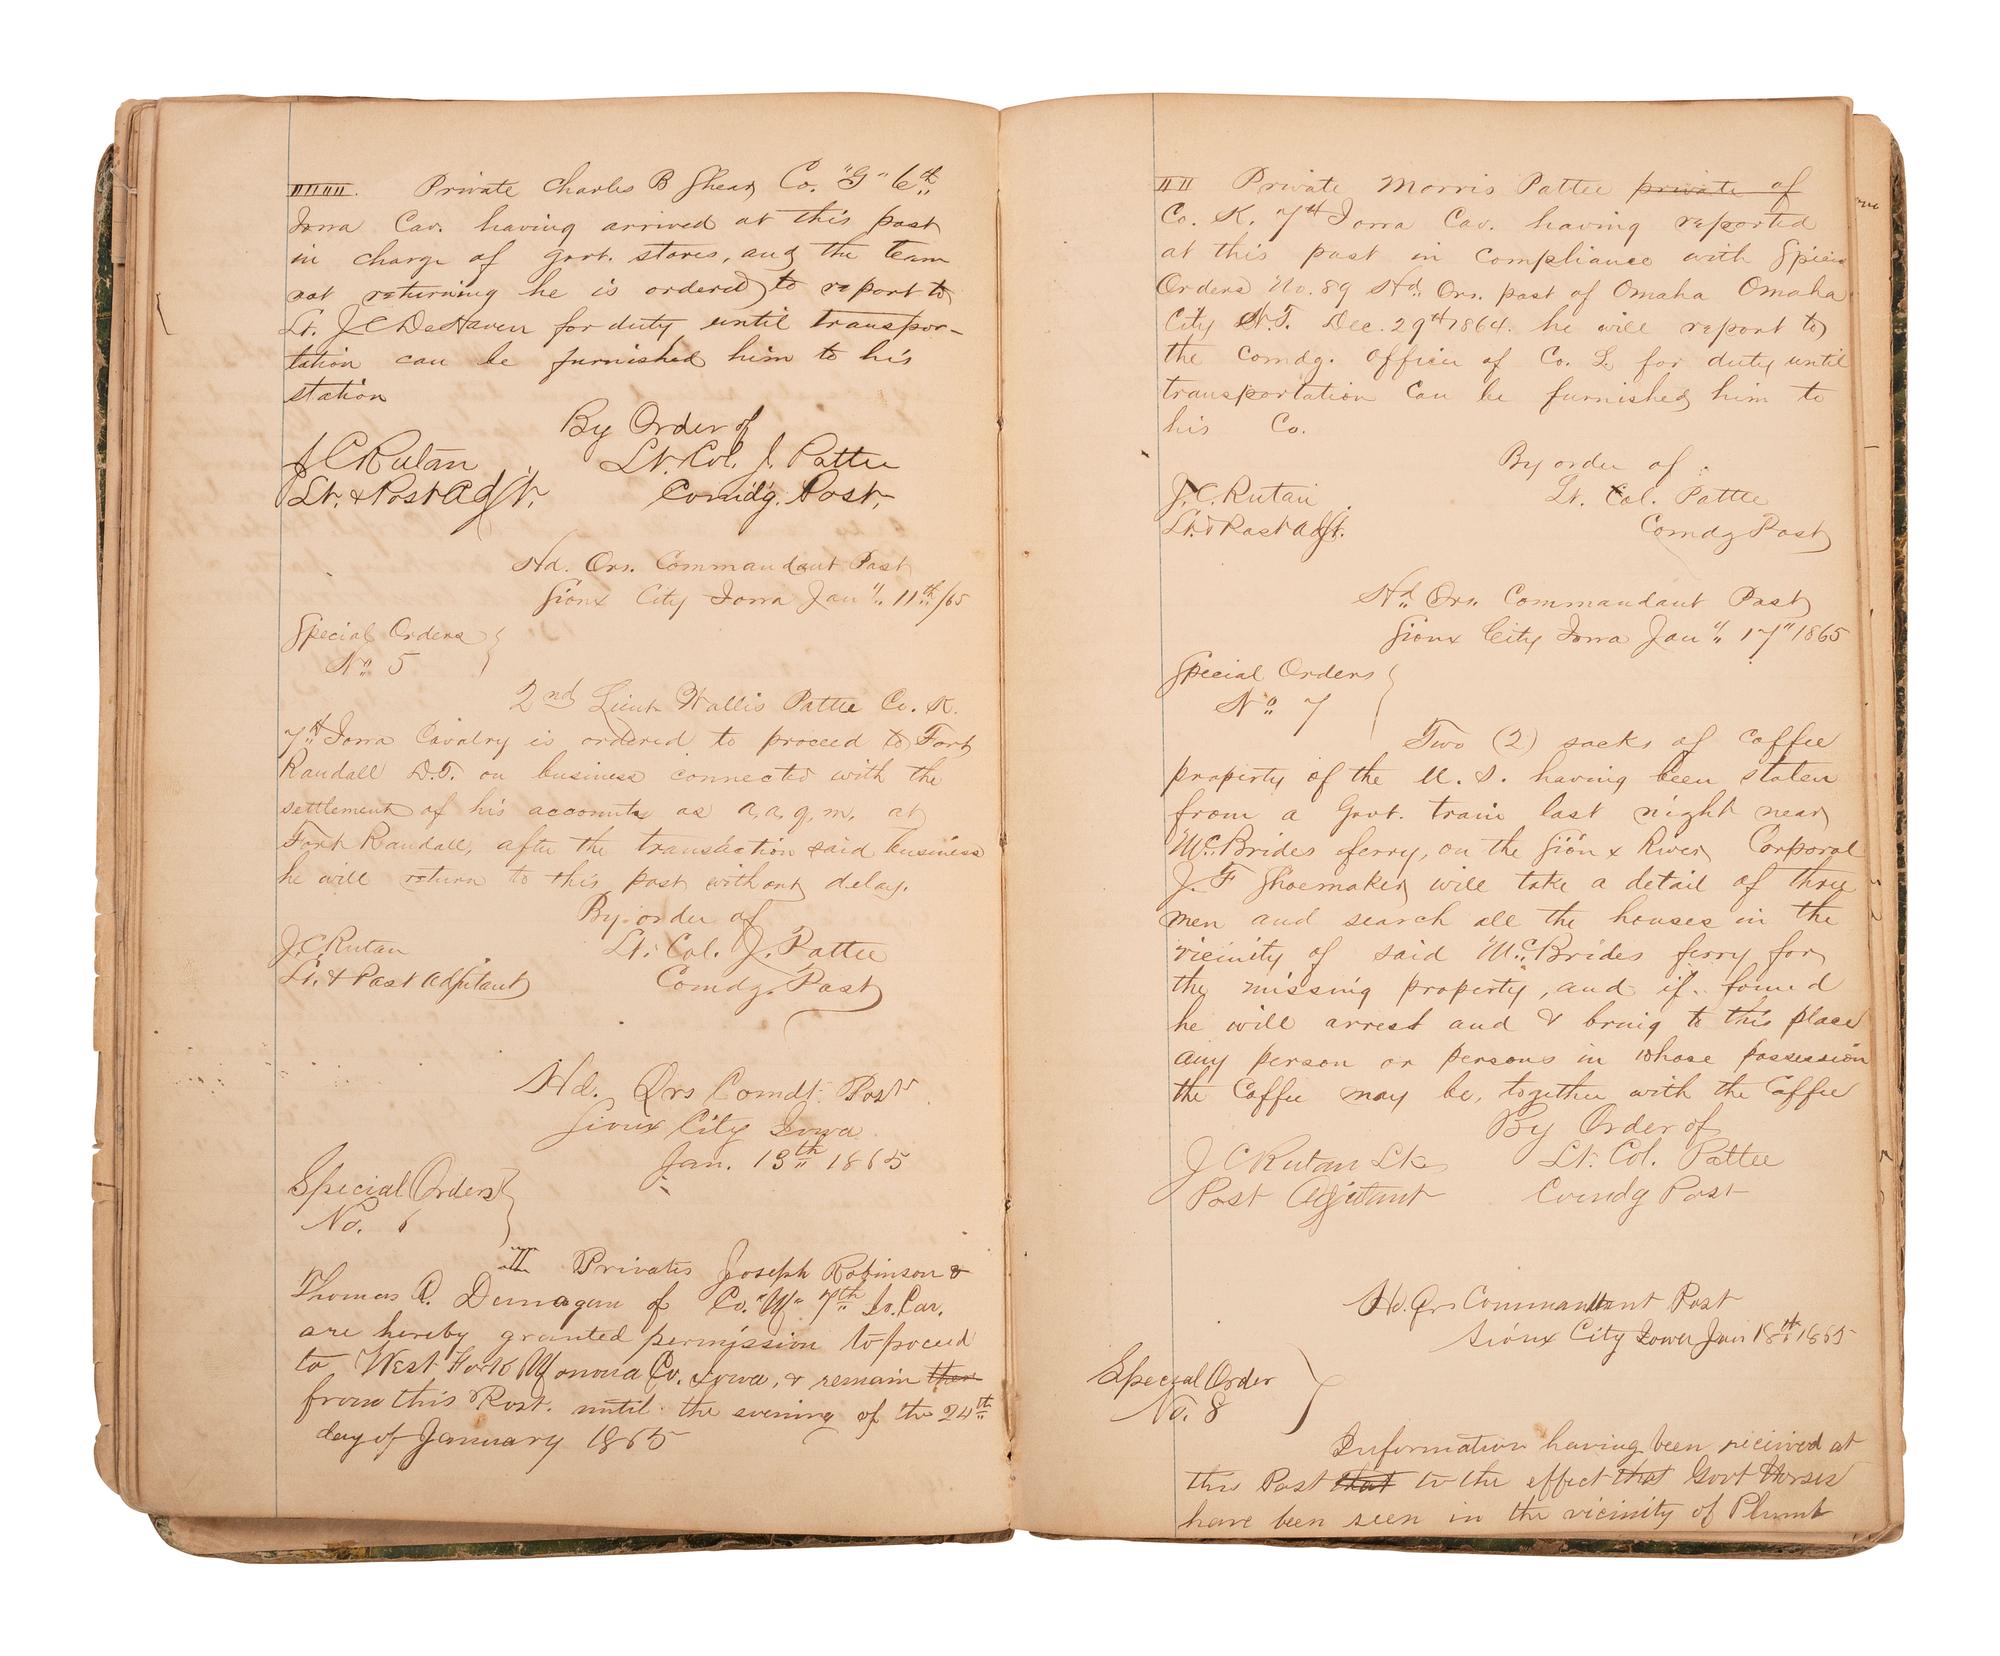 IIIII. Private Charles B Shear Co. "G" 6th
Iowa Cav. having arrived at this post
in charge of govt. stores, and the team
not returning he is ordered to report to
Lt. J C DeHaven for duty until transpor-
tation can be furnished him to his
station
By Order of
J C Rutan Lt. Col. J. Pattee
Lt. & Post Adjt. Comdg. Post.
Hd. Qrs. Commandant Post
Sioux City Iowa Jan "/.. 11th/65
Special Orders
No. 5
2nd Lieut Wallis Pattee Co. K.
7th Iowa Cavalry is ordered to proceed to Fort
Randall D.T. on business connected with the
settlement of his accounts as a.a.q.m. at
Fort Randall, after the transaction said business
he will return to this post without delay.
By order of
J. C Rutan Lt. Col. J. Pattee
Lt. & Post Adjutant Comdg. Post
Hd. Qrs Comdt. Post
Sioux City Iowa
Jan. 13th 1865
Special Orders
No. 6
II Privates Joseph Robinson &
Thomas A. Dunagan of Co. "M" 7th Io. Cav.
are hereby granted permission to proceed
to West Fork Monona Co. Iowa, & remain
from this Post. until the evening of the 24th
day of January 1865
II II Private Morris Pattee private of
Co. K. 7th Iowa Cav. having reported
at this post in compliance with Special
Orders No. 89 Hd. Qrs. post of Omaha Omaha
City N.T. Dec. 29th 1864. he will report to
the Comdg. officer of Co. L for duty until
transportation can be furnished him to
his Co.
By order of
J. C. Rutan Lt. Col. Pattee
Lt. & Post Adjt. Comdg Post
Hd. Qrs. Commandant Post
Sioux City Iowa Jan "/.. 17" 1865
Special Orders
No. 7
Two (2) sacks of coffee
property of the U. S. having been stolen
from a Govt. train last night near
McBrides ferry, on the Sioux River Corporal
J. F Shoemaker will take a detail of three
men and search all the houses in the
vicinity of said McBrides ferry for
the missing property, and if found
he will arrest and & bring to this place
any person or persons in whose possession
the Coffee may be, together with the Coffee
By Order of
J C Rutan Lt & Lt. Col. Pattee
Post Adjutant Comdg Post
Hd. Qrs Commandant Post
Sioux City Iowa Jan 18th 1865
Special Order
No. 8
Information having been received at
this Post that to the effect that Govt Horses
have been seen in the vicinity of Plumb